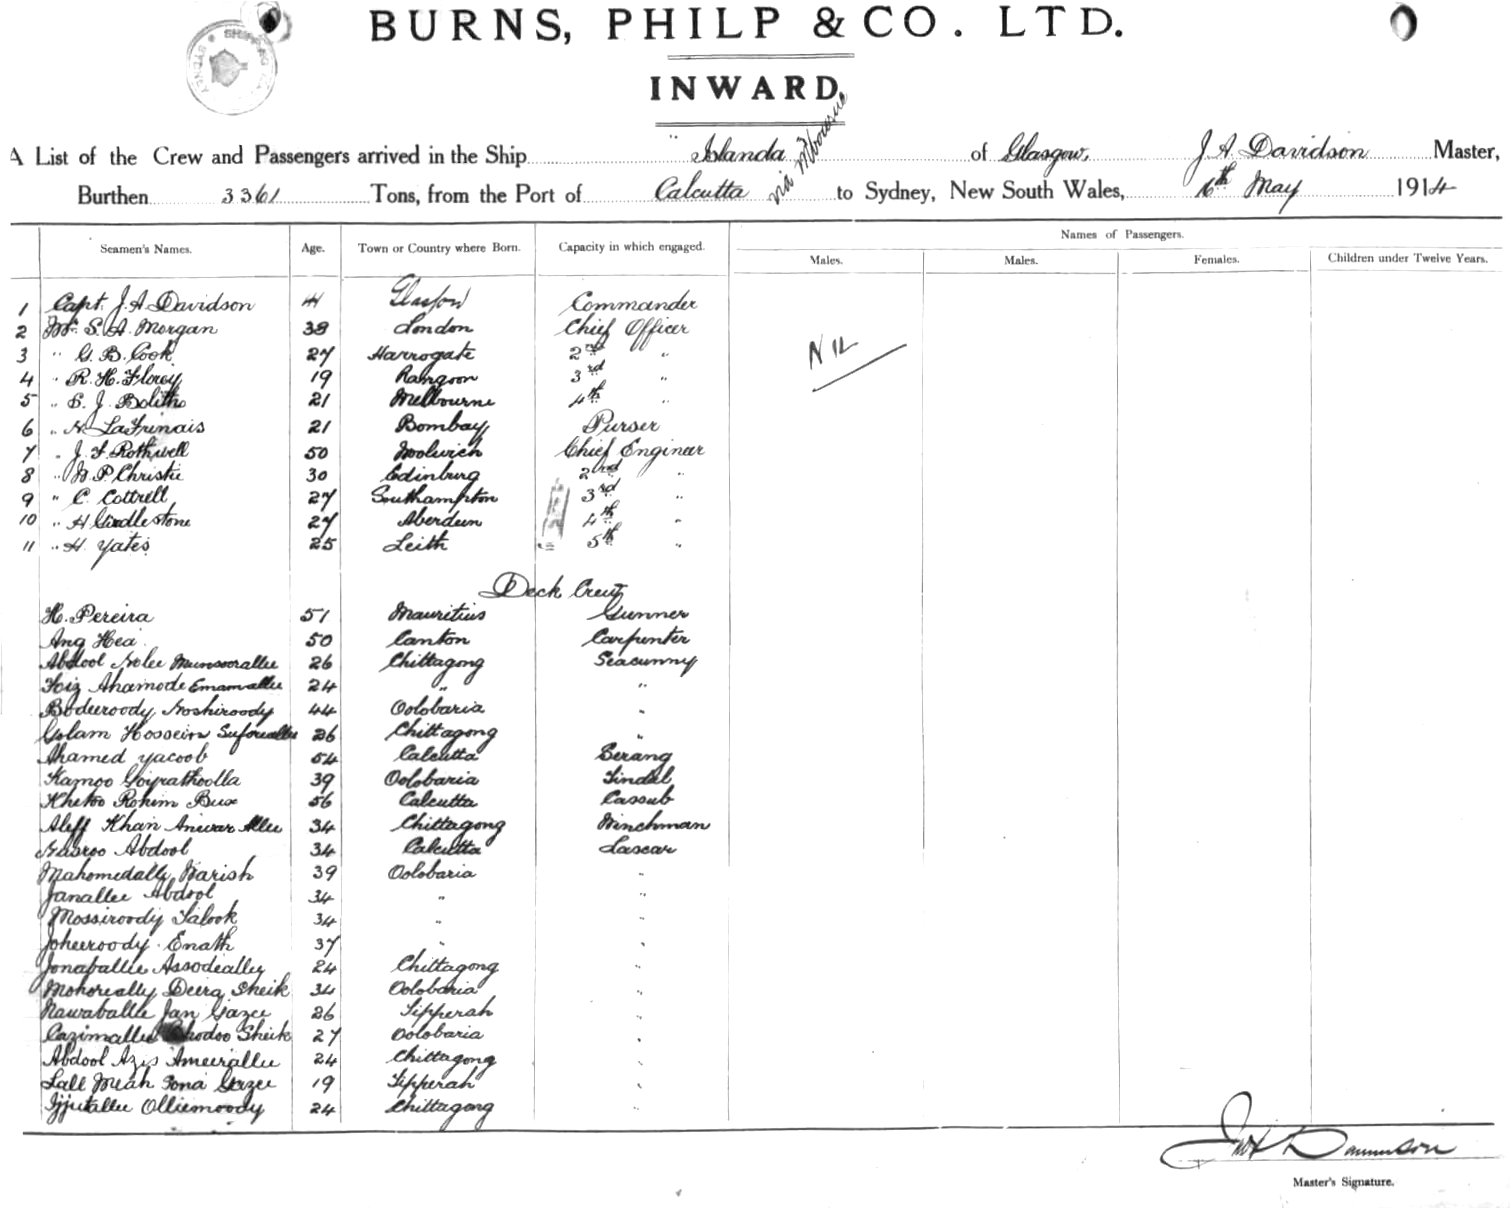 BURNS, PHILP & CO. LTD.
INWARD.
A List of the Crew and Passengers arrived in the Ship "Islanda via Melbourne of Glasgow, J. A. Davidson Master,
Burthen 3361 Tons, from the Port of Calcutta to Sydney, New South Wales, 6th May 1914
Names of Passengers.
Seamen's Names. Age. Town or Country where Born. Capacity in which engaged. Males. Males. Females. Children under Twelve Years.
1 Capt. J. A. Davidson 41 Glasgow Commander
2 Mr. S. A. Morgan 38 London Chief Officer
3 " G. B. Cook 27 Harrogate 2nd " NIL
4 " R. H. Florey 19 Rangoon 3rd "
5 " J. Bolitho 21 Melbourne 4th "
6 " LaFrinais 21 Bombay Purser
7 " J. F. Rothwell 50 Woolwich Chief Engineer
8 " P. Christie 30 Edinburg 2nd "
9 " C. Cottrell 27 Southampton 3rd "
10 " H Girdlestone 27 Aberdeen 4th "
11 " H. Yates 25 Leith 5th "
Deck Crew
H. Pereira 51 Mauritius Gunner
Ang Hea 50 Canton Carpenter
Abdool Munsoorallee 26 Chittagong Seacunny
Ahamode Emamallee 24 " "
Bodeeroody Noshiroody 44 Oolobaria "
Golam Hossein 26 Chittagong "
Ahamed Yacoob 54 Calcutta Serang
Kamoo 39 Oolobaria Tindal
Khetoo Rohim Bux 56 Calcutta Cassub
Aleff Khan Anwar Allee 34 Chittagong Winchman
Nasroo Abdool 34 Calcutta Lascar
Mahomedally Warish 39 Oolobaria "
Janallee Abdool 34 " "
Mossiroody Talook 34 " "
Joheeroody Enath 37 " "
Jonaballee Assodeally 24 Chittagong "
Mohoreally Deerg Sheik 34 Oolobaria "
Nawaballee Jan Gazee 26 Tipperah "
Cazimallee Sheik 27 Oolobaria "
Abdool Azis Ameerallee 24 Chittagong "
Lall Meah Sona Gazee 19 Tipperah "
Olliemoody 24 Chittagong "
Davidson
Master's Signature.